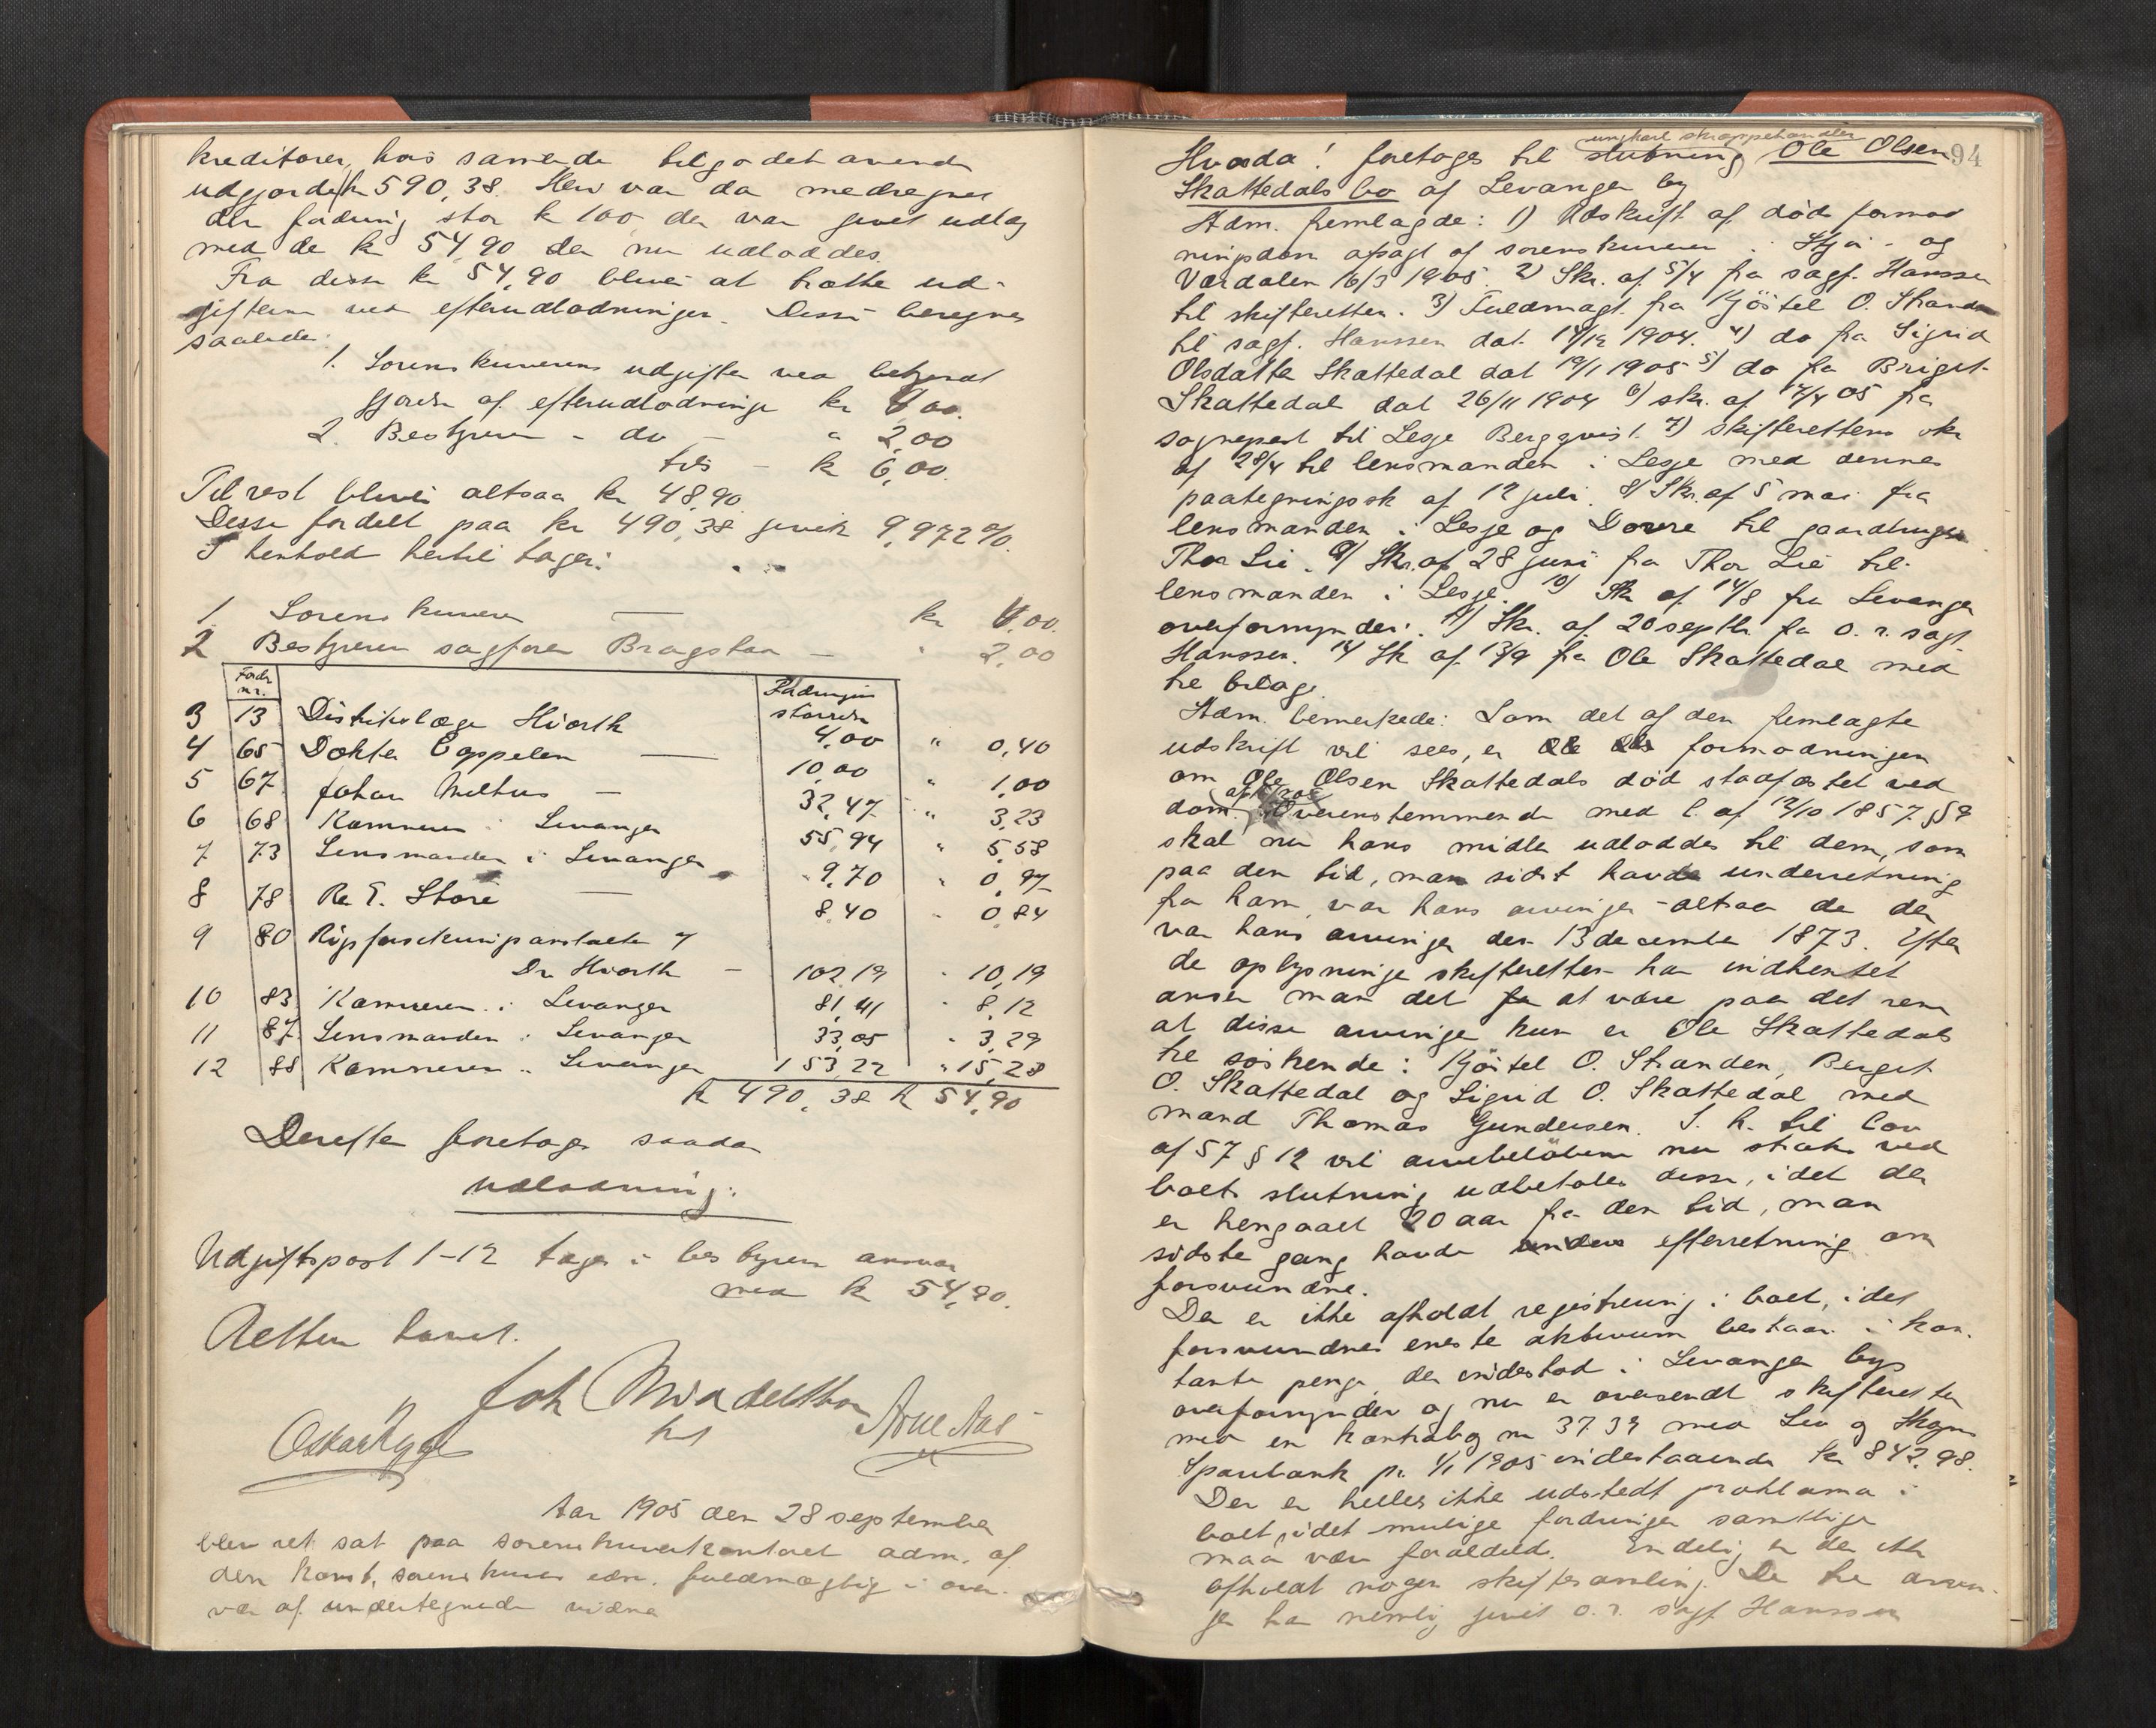 kreditorer, hvis samlede tilgodehavende
udgjorde kr 590,38. Heri var da medregnet
den fordring stor kr 100 der var givet udlæg
med de kr 54,90 der nu udloddes.
Fra disse kr 54,90 bliver at trække ud-
gifterne ved efterudlodningen. Disse beregnes
saaledes:
1. Sorenskriverens udgifter ved bekjendt
gjørelse af efterudlodninge kr 4,00.
2. Bestyreren - do - " 2,00
tils - kr 6,00.
Til rest bliver altsaa kr 48,90
Disse fordelt paa kr 490,38 giver 9,972 %.
I henhold hertil tager:
1. Sorenskriveren — kr 4,00.
2 Bestyreren sagfører Bragstad — " 2,00
Fordr. nr. Fordringens størrelse
3 13 Distriktslæge Hiorth 4,00 " 0,40
4 65 Doktor Coppelen — 10,00 " 1,00
5 67 Johan Melhus — 32,47 " 3,23
6 68 Kæmneren i Levanger 55,94 " 5,58
7 73 Lensmanden i Levanger 9,70 " 0,97
8 78 Re E. Støre — 8,40 " 0,84
9 80 Rigsforsikringsanstalten v
Dr Hiorth — 102,19 " 10,19
10 83 Kæmneren i Levanger 81,41 " 8,12
11 87 Lensmanden i Levanger 33,05 " 3,29
12 88 Kæmneren i Levanger 153,22 " 15,28
kr 490,38 kr 54,90
Derefter foretoges saadan
udlodning:
Udgiftspost 1-12 tages i bestyrerens ansvar
med kr 54,90.
Retten hævet.
Joh Mindelthon
kst
Oskar Rygg Arne Aas
Aar 1905 den 28 september
blev ret sat paa sorenskriverkontoret adm. af
den konst. sorenskriver edsv. fuldmægtig i over-
vær af undertegnede vidner
94
ungkarl skræppehandler
Hvorda! foretoges til slutning Ole Olsen
Skattedals bo af Levanger by
Adm. fremlagde: 1) Udskrift af døds formod
ningsdom afsagt af sorenskriveren i Stjør- og
Værdalen 16/3 1905. 2) Skr. af 5/4 fra sagf. Hanssen
til skifteretten. 3) Fuldmagt fra Kjöstel O. Stranden
til sagf. Hanssen dat. 14/12 1904. 4) do fra Sigrid
Olsdatter Skattedal dat 19/1 1905 5) do fra Briget
Skattedal dat 26/11 1904 6) skr. af 17/4 05 fra
sognepræst til Lesje Bergqvist. 7) skifterettens skr
af 28/4 til lensmanden i Lesje med dennes
paategningssk af 12 juli. 8) Skr. af 5 mai fra
lensmanden i Lesje og Dovre til gaardbruger
Thor Lie. 9) Skr. af 28 juni fra Thor Lie til
lensmanden i Lesje. 10) Skr af 14/8 fra Levanger
overformynderi. 11) Skr. af 20 septbr. fra o.r. sagf.
Hanssen. 12) Sk af 13/9 fra Ole Skattedal med
tre bilage.
Adm. bemerkede: Som det af den fremlagte
udskrift vil sees, er formodningen
om Ole Olsen Skattedals død stadfæstet ved
dom. Overenstemmende med l. af 12/10 1857 § 9
skal nu hans midler udloddes til dem, som
paa den tid, man sidst havde underretning
fra ham, var hans arvinger - altsaa de der
var hans arvinger den 13 december 1873. Efter
de oplysninger skifteretten har indhentet
anser man det at være paa det rene
at disse arvinger kun er Ole Skattedals
tre søskende: Kjöstel O. Stranden, Berget
O. Skattedal og Sigrid O. Skattedal med
mand Thomas Gundersen. I. h. til lov
af 57 § 12 vil arvebeløbene nu straks ved
boets slutning udbetales disse, idet der
er hengaaet 20 aar fra den tid, man
sidste gang havde efterretning om
forsvundne.
Der er ikke afholdt registrering i boet, idet
forsvundnes eneste aktivum bestaar i kon-
tante penge, der indestod i Levanger bys
overformynderi og nu er oversendt skifteretten
med en kontrabog nr 3739 med Lev og Skogns
Sparebank pr. 1/1 1905 indestaaende kr 842,98.
Der er heller ikke udstedt proklama i
boet, idet mulige fordringer samtlige
maa være forældede. Endelig er der ikke
afholdt nogen skiftesamling. De tre arvin-
ger har nemlig givet o.r. sagf. Hanssen